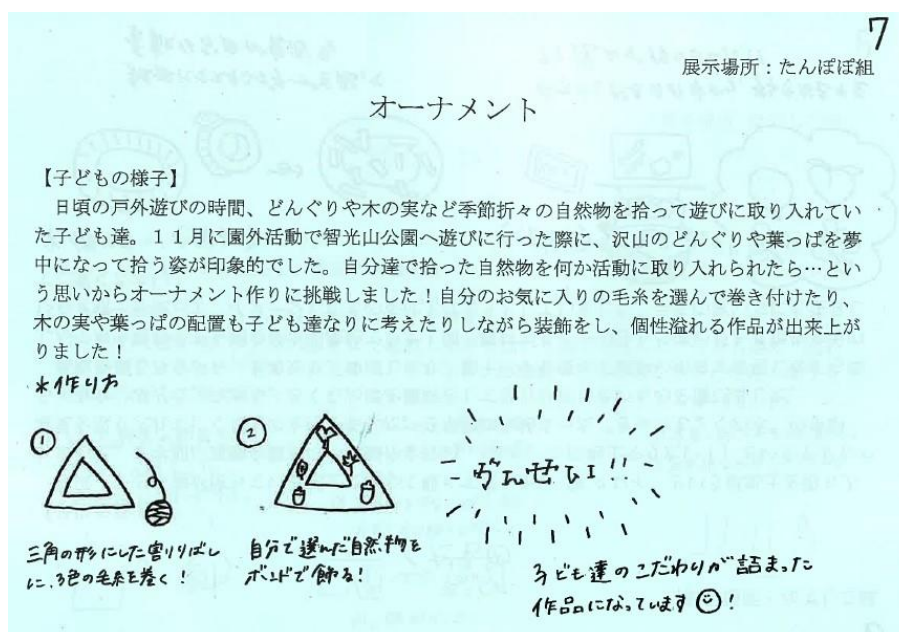 7
展示場所：たんぽぽ組
オーナメント
【子どもの様子】
日頃の戸外遊びの時間、どんぐりや木の実など季節折々の自然物を拾って遊びに取り入れてい
た子ども達。１１月に園外活動で智光山公園へ遊びに行った際に、沢山のどんぐりや葉っぱを夢
中になって拾う姿が印象的でした。自分達で拾った自然物を何か活動に取り入れられたら…とい
う思いからオーナメント作りに挑戦しました！自分のお気に入りの毛糸を選んで巻き付けたり、
木の実や葉っぱの配置も子ども達なりに考えたりしながら装飾をし、個性溢れる作品が出来上が
りました！
＊作り方
①
三角の形にした割りばし
に、3色の毛糸を巻く！
②
自分で選んだ自然物を
ボンドで飾る！
かんせい!!
子ども達のこだわりが詰まった
作品になっています☺！